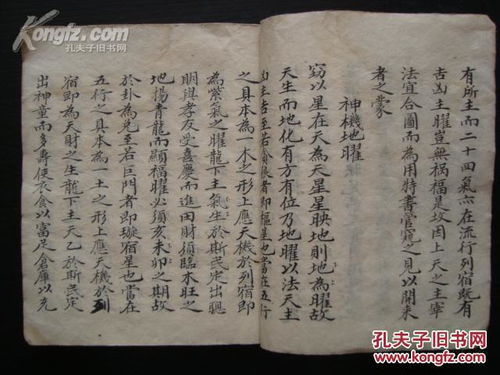 有所主而二十四氣六在流行列宿旣有
吉凶主曜豈無禍福是故因上天之主宰
法宜合圖而為用特書管窺之見以開來
者之蒙
神機地曜
竊以星在天為天星星映地則地為曜故
天生而地化有方有位乃地曜以法天主
凶主吉至若貪狼者即樞星也當在五行
之具本為一木之形上應天機於列宿即
為紫氣之曜龍下主氣生於斯民出聰
明與孝友受喜慶而進田財須臨木旺之
地揚青龍而顯福曜必須亥未卯之期故
於卦為先至若巨門者即璇宿星也當在
五行之具本為一土之形上應天機於列
宿即為天財之生龍下主天乙於斯民定
出神童而多壽使衣食以富足倉庫以充
Kongfz.com
孔夫子旧书网
孔夫子旧书网
www.kongfz.com